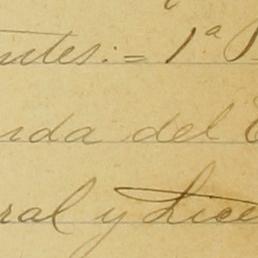 ntes:= 1ª P
nda del E
ral y Lice